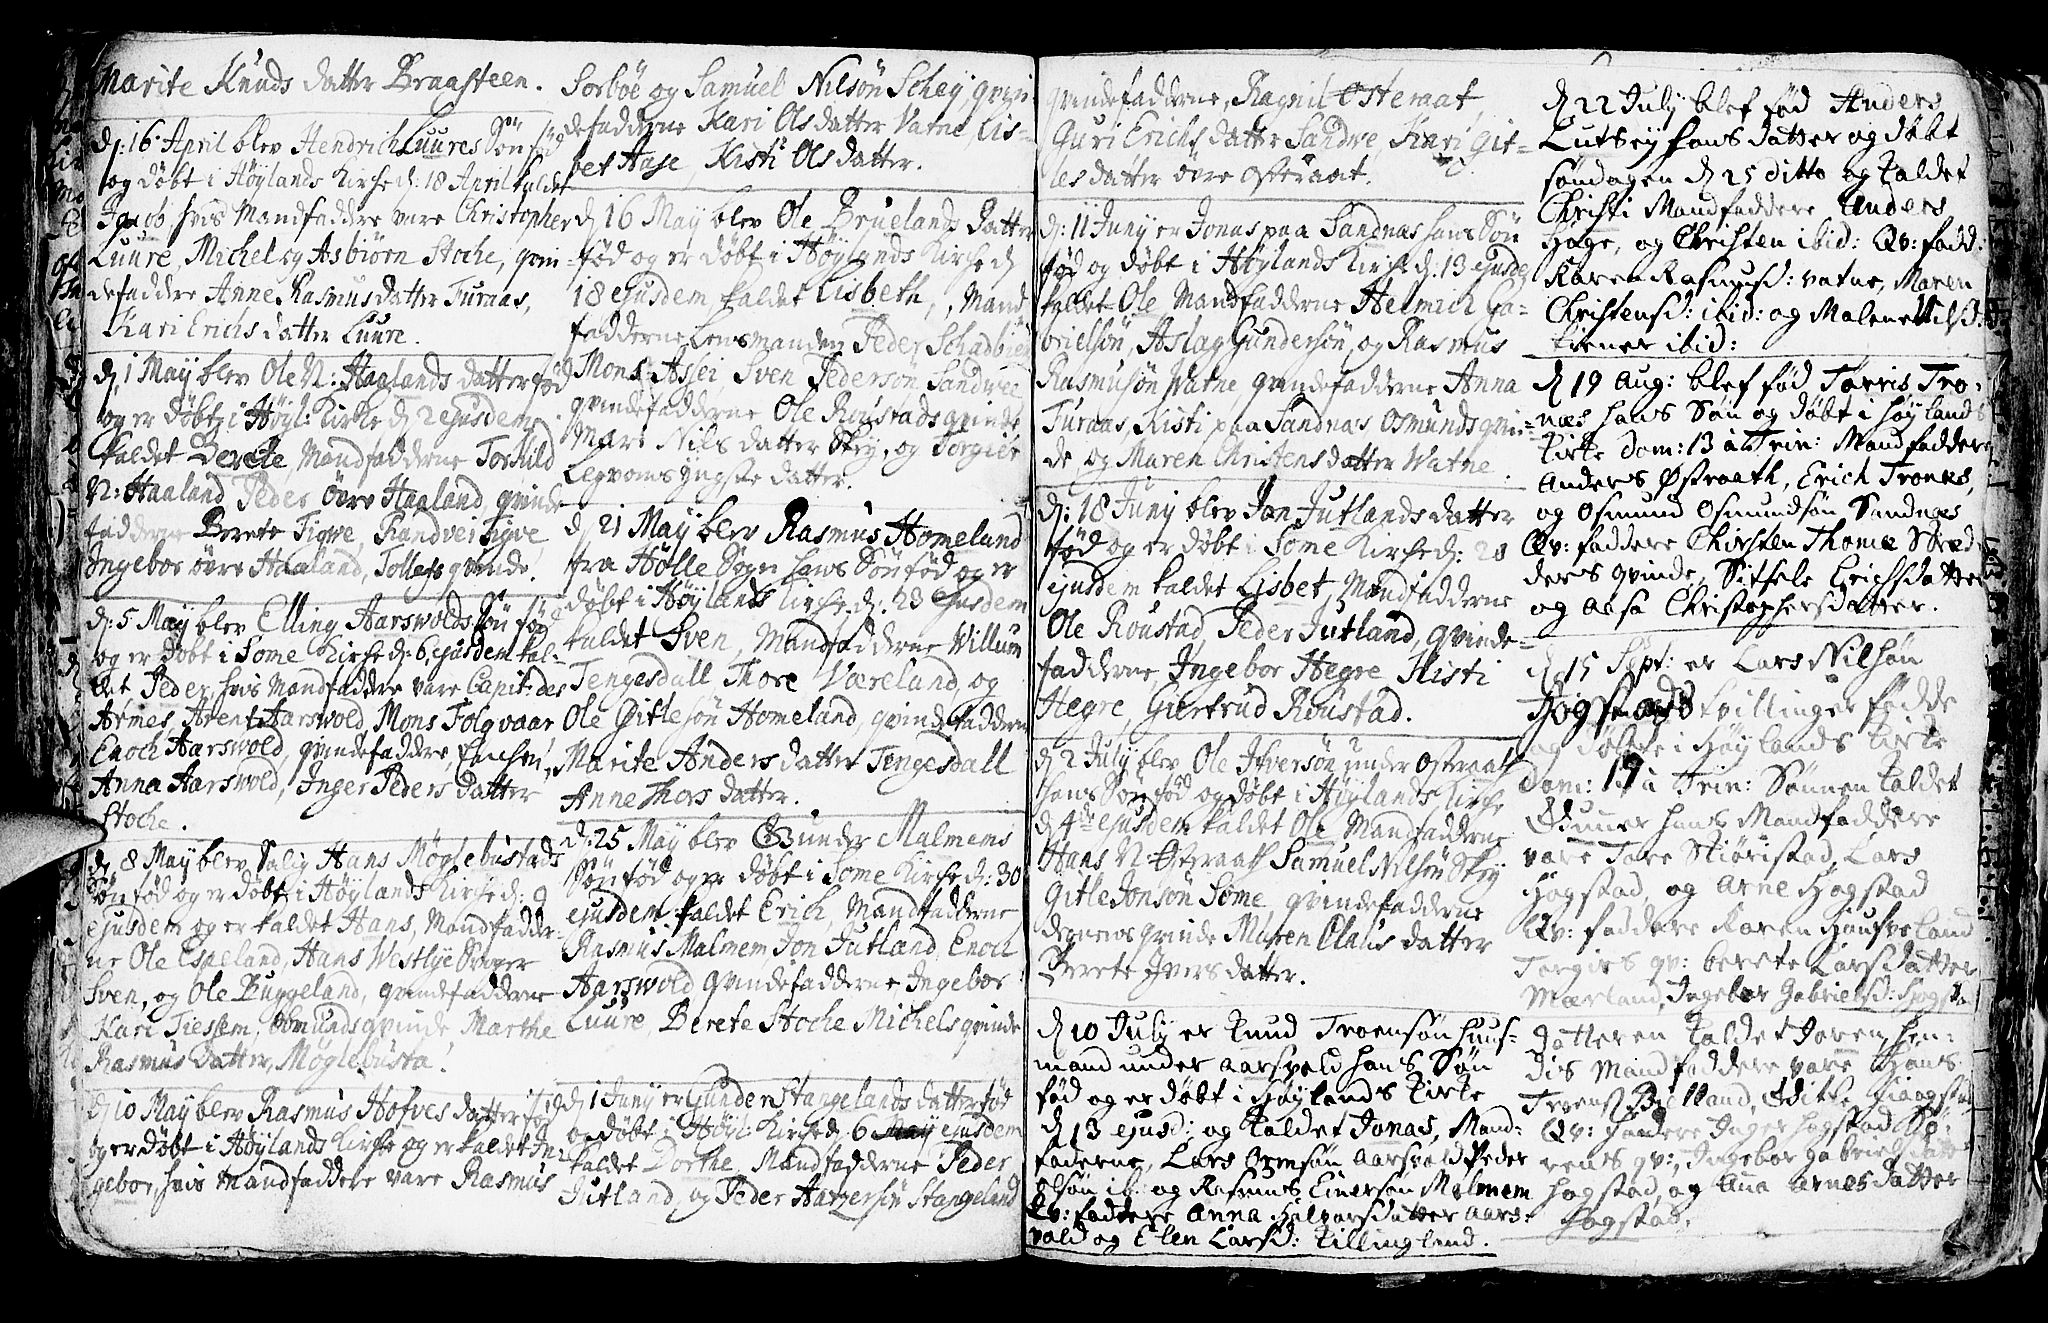 Marite Knuds datter Braasteen.
dj: 16 April blev Hendrich Luures Søn fød
og døbt i Høylands Kirche d: 18 April kaldet
Jacob hvis Mandfaddre vare Christopher
Luure, Michel og Asbiørn Stoche, qvin-
defaddre Anne Rasmusdatter Turaas,
Kari Erichs datter Luure.
dj 1 May blev Ole N: Haalands datter fød
og er døbt i Høyl: Kirke dj 2 ejusdem
kaldet Berete, Mandfadderne Torkild
N: Haaland, Peder øvre Haaland, qvinde
fadderne Berete Figve, Randvei Figve,
Ingebor øvre Haaland, Tollefs qvinde.
dj: 5 May blev Elling Aarswolds Søn fød
og er døbt i Some Kirche d: 6 ejusdem kal-
det Peder, hvis Mandfaddre vare Capit: des
Armes Arent Aarswold, Mons Folqvaar
Enoch Aarswold, qvindefaddre,
Anna Aarswold, Inger Peders datter
Stoche.
dj 8 May blev Salig Hans Møglebustads
Søn fød og er døbt i Høylands Kirche d: 9
ejusdem og er kaldet Hans, Mandfadder-
ne Ole Espeland, Hans Westlye Svoger
Sven, og Ole Buggeland, qvindefadderne
Kari Tiessem, Osmunds qvinde Marthe
Rasmus datter, Møglebusta.
dj 10 May blev Rasmus Hofves datter fød
og er døbt i Høylands Kirche og er kaldet In-
gebor, hvis Mandfaddre vare Rasmus
Sorbøe og Samuel Nilsøn Schey, qvin-
defadderne Kari Olsdatter Vatne, Lis-
bet Aase, Kisti Olsdatter.
dj 16 May blev Ole Bruelands Datter
fød og er døbt i Høylands Kirche dj
18 ejusdem kaldet Lisbeth, Mand
fadderne Lensmanden Peder Schadbier
Mons: Assei, Sven Pedersøn Sandvee
qvindefadderne Ole Roustads qvinde
Mari Nils datter Skey, og Torgier
Legvoms yngste datter.
dj 21 May blev Rasmus Homeland
fra Hølle Sogn hans Søn fød og er
døbt i Høylands Kirche d: 23 ejusdem
kaldet Sven, Mandfadderne Willum
Tengesdall Thore Væreland, og
Ole Gitlesøn Homeland, qvindefadderne
Marite Anders datter Tengesdall
Anne Thors datter.
d: 25 May blev Gunder Malmems
Søn fød og er døbt i Some Kirche d: 30
ejusdem kaldet Erich, Mandfadderne
Rasmus Malmem, Jon Jutland, Enoch
Aarswold qvindefadderne, Ingebor
Luure, Berete Stoche Michels qvinde
dj 1 Juny er Gunder Stangelands datter fød
og døbt i Høyl: Kirche dj 6 ejusdem
kaldet Dorthe, Mandfadderne Peder
Jutland, og Peder Aanensøn Stangeland
qvindefadderne, Ragnil Osteraat,
Guri Erichs datter Sandve, Kari Git-
les datter øvre Osteraat.
dj: 11 Juny er Jonas paa Sandnæs hans Søn
fød og døbt i Høylands Kirche d: 13 ejusd:
kaldet Ole Mandfadderne Helmich Ga-
brielsøn, Aslag Gundersøn, og Rasmus
Rasmusøn Watne, qvindefadderne Anna
Turaas, Kisti paa Sandnæs Osmunds qvin-
de og Maren Christensdatter Watne
dj: 18 Juny blev Jon Jutlands datter
fød og er døbt i Some Kirche d: 20
ejusdem kaldet Lisbet, Mandfadderne
Ole Roustad, Peder Jutland, qvinde-
fadderne Ingebor Hegre Kisti
Hegre, Giertrud Roustad.
dj 2 July blev Ole Iversøn under Osteraat
hans Søn fød og døbt i Høylands Kirche
dj 4de ejusdem kaldet Ole Mandfadderne
Hans N: Osteraat Samuel Nilsøn Skey
Gitle Jonsøn Some qvindefadderne
degnens qvinde Maren Claus datter
Berete Ivers datter.
dj 10 July er Knud Troensøn Huus-
mand under Aarsvold hans Søn
fød og er døbt i Høylands Kirke
dj 13 ejusd: og kaldet Jonas, Mand-
faderne, Lars Ormsøn Aarsvold Peder
olsøn ib: og Rasmus Einersøn Malmem
Qv: faddere Anna Halvorsdatter Aars-
vold og Elen Larsd: Killingland.
dj 22 July blef fød Anders
Lutseys hans datter og døbt
søndagen dj 25 ditto og kaldet
Christi Mandfaddere Anders
Hage, og Christen ibid: Qv: fadd:
Karen Rasmusd: vatne, Maren
Christensd: ibid: og Malene Nilsd:
tiener ibid:
dj 19 Aug: blef fød Torris Tro-
næs hans Søn og døbt i Høylands
Kirke Dom: 13 à Trin: Mandfaddere
Anders Østraath, Erich Tronæs,
og Osmund Osmundsøn Sandnæs
Qv: faddere Chirsten Thomæ Skræd-
ders qvinde, Sithele Erichsdatter
og Aasa Christophersdatter.
dj 15 Sept: er Lars Nilsøn
Hogstads tvillinger fødde
og døbte i Høylands Kirke
Dom: 17 à Trin: Sønnen kaldet
Gunner hans Mandfaddere
vare Tore Skiørestad, Lars
Hogstad, og Arne Hogstad
Qv: faddere Karen Hausveland
Torgirs qv: berete Larsdatter
Mærland, Ingebor Gabrielsd: Hogsta
Datteren kaldet Joren, hen-
dis Mandfaddere vare Hans
Troens. Bielland,
Qv: Faddere Inger Hogstad Sø-
rens qv:, Ingebor Gabriels datt:
Hogstad, og Ana Arnes datter
Hogstad.